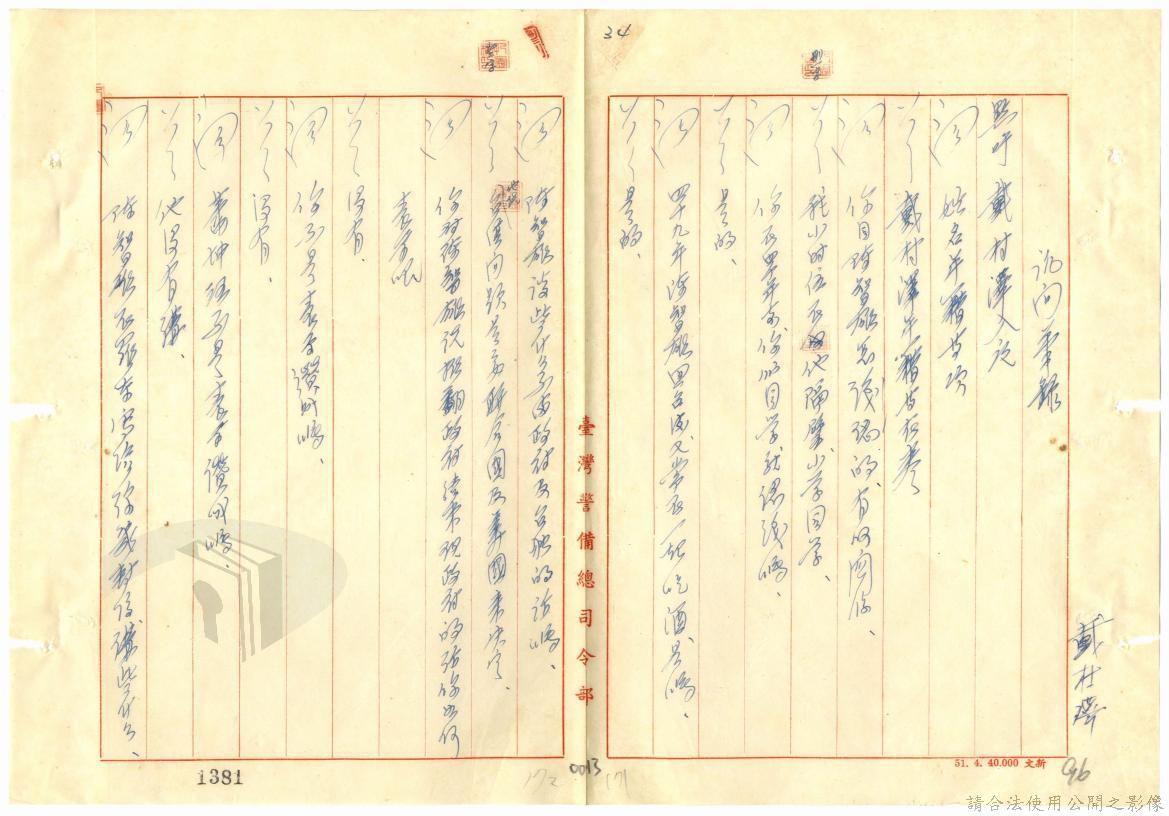 34
訊問筆錄
點呼戴村澤入庭
問 姓名年籍等項
答 戴村澤年籍等在卷
問 你同陳智雄怎樣認識的、有何關係、
答 我小時住在他隔壁、小學同學、
問 你在四十年前你們同學就認識嗎、
答 是的、
問 四十九年陳智雄回台後又常在一起吃酒、是嗎、
答 是的、
問 陳智雄說些什么反政府及台獨的話嗎、
答 台灣問題是要聯合國及美國來決定、
問 你對陳智雄說推翻政府結束現政府的話你如何
表示呢
答 沒有
問 你不是表示讚成嗎、
答 沒有、
問 蕭坤旺不是表示讚成嗎、
答 他沒有講、
問 陳智雄在羅東
講些什么、
臺灣警備總司令部
戴村澤
51. 4. 40.000 文新
96
171
172
0013
1381
請合法使用公開之影像